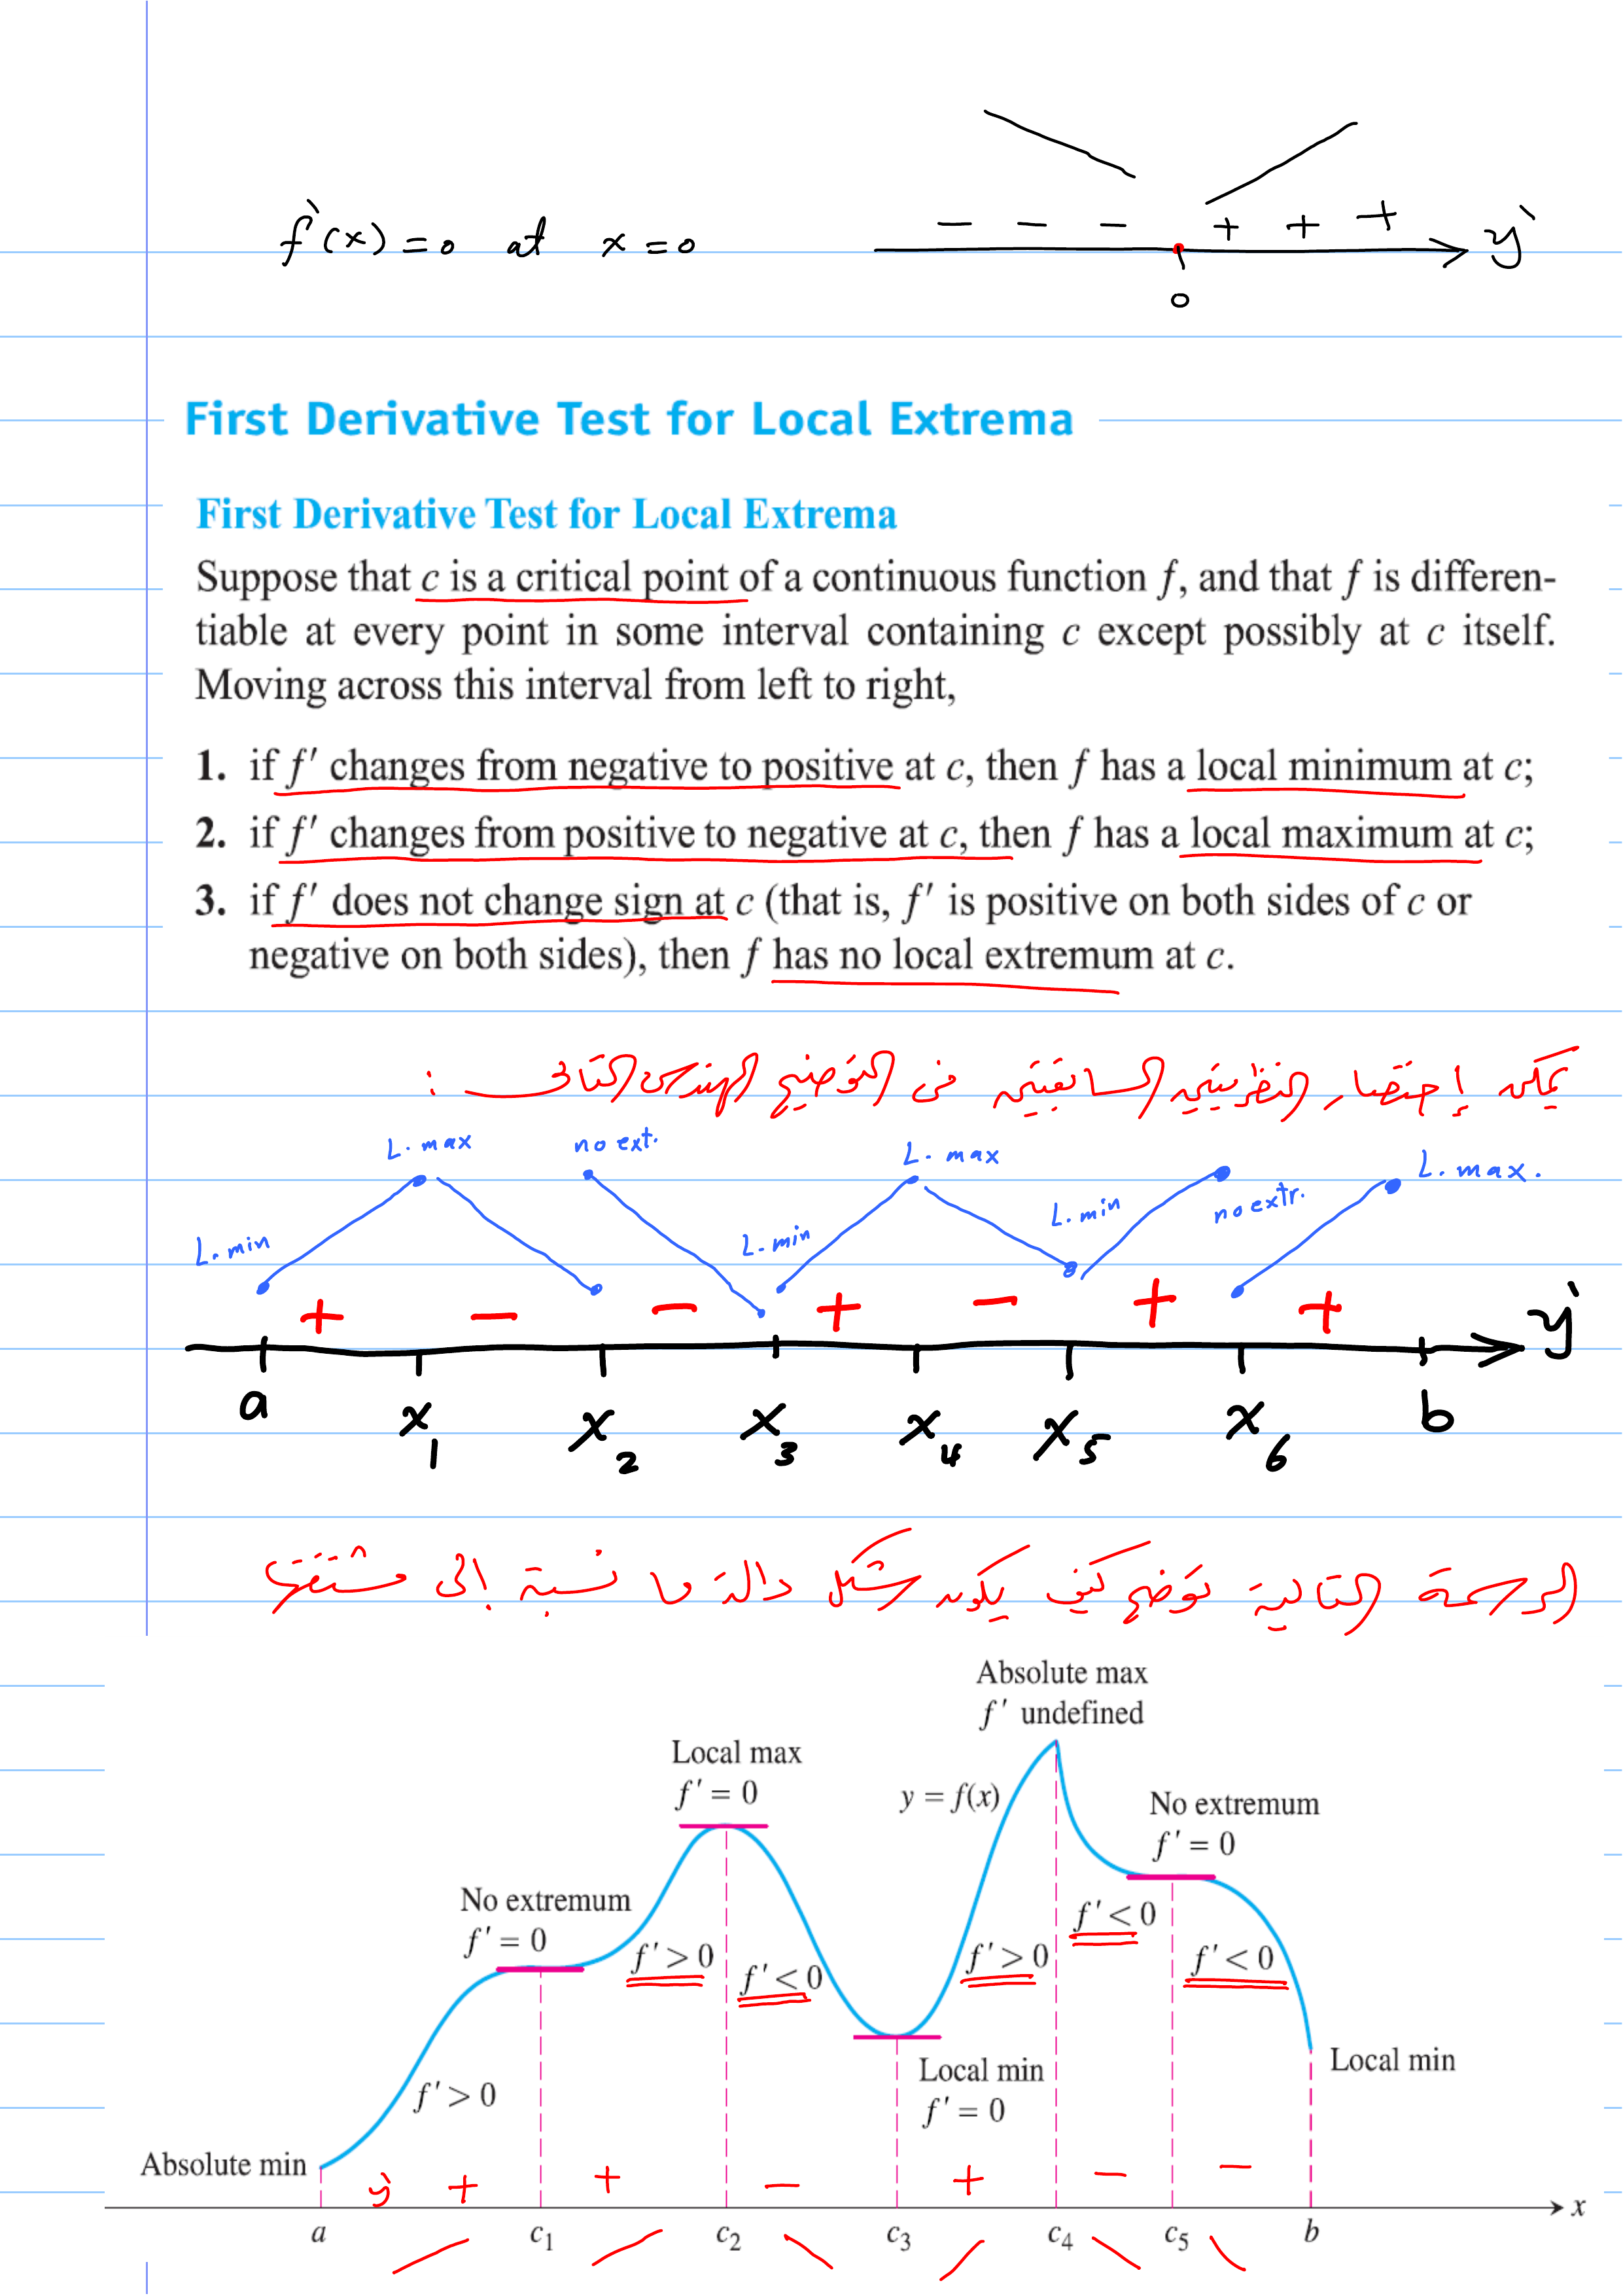 f`(x) = 0 at x = 0
− − − + + + y`
0
First Derivative Test for Local Extrema
First Derivative Test for Local Extrema
Suppose that c is a critical point of a continuous function f, and that f is differen-
tiable at every point in some interval containing c except possibly at c itself.
Moving across this interval from left to right,
1. if f′ changes from negative to positive at c, then f has a local minimum at c;
2. if f′ changes from positive to negative at c, then f has a local maximum at c;
3. if f′ does not change sign at c (that is, f′ is positive on both sides of c or
negative on both sides), then f has no local extremum at c.
يمكن إختصار النظريتين السابقتين فى التوضيح الهندسى التالى :
L. max no ext. L. max L. max.
L. min L. min L. min no extr.
+ − − + − + + y`
a x1 x2 x3 x4 x5 x6 b
الرسمة التالية توضح كيف يكون شكل دالة ما نسبة إلى مشتقتها
Absolute max
f′ undefined
Local max
f′ = 0
y = f(x)
No extremum
f′ = 0
No extremum
f′ = 0
f′ > 0
f′ < 0
f′ > 0
f′ < 0
f′ < 0
Local min
f′ = 0
Local min
f′ > 0
Absolute min
y` + + − + − −
x
a c1 c2 c3 c4 c5 b